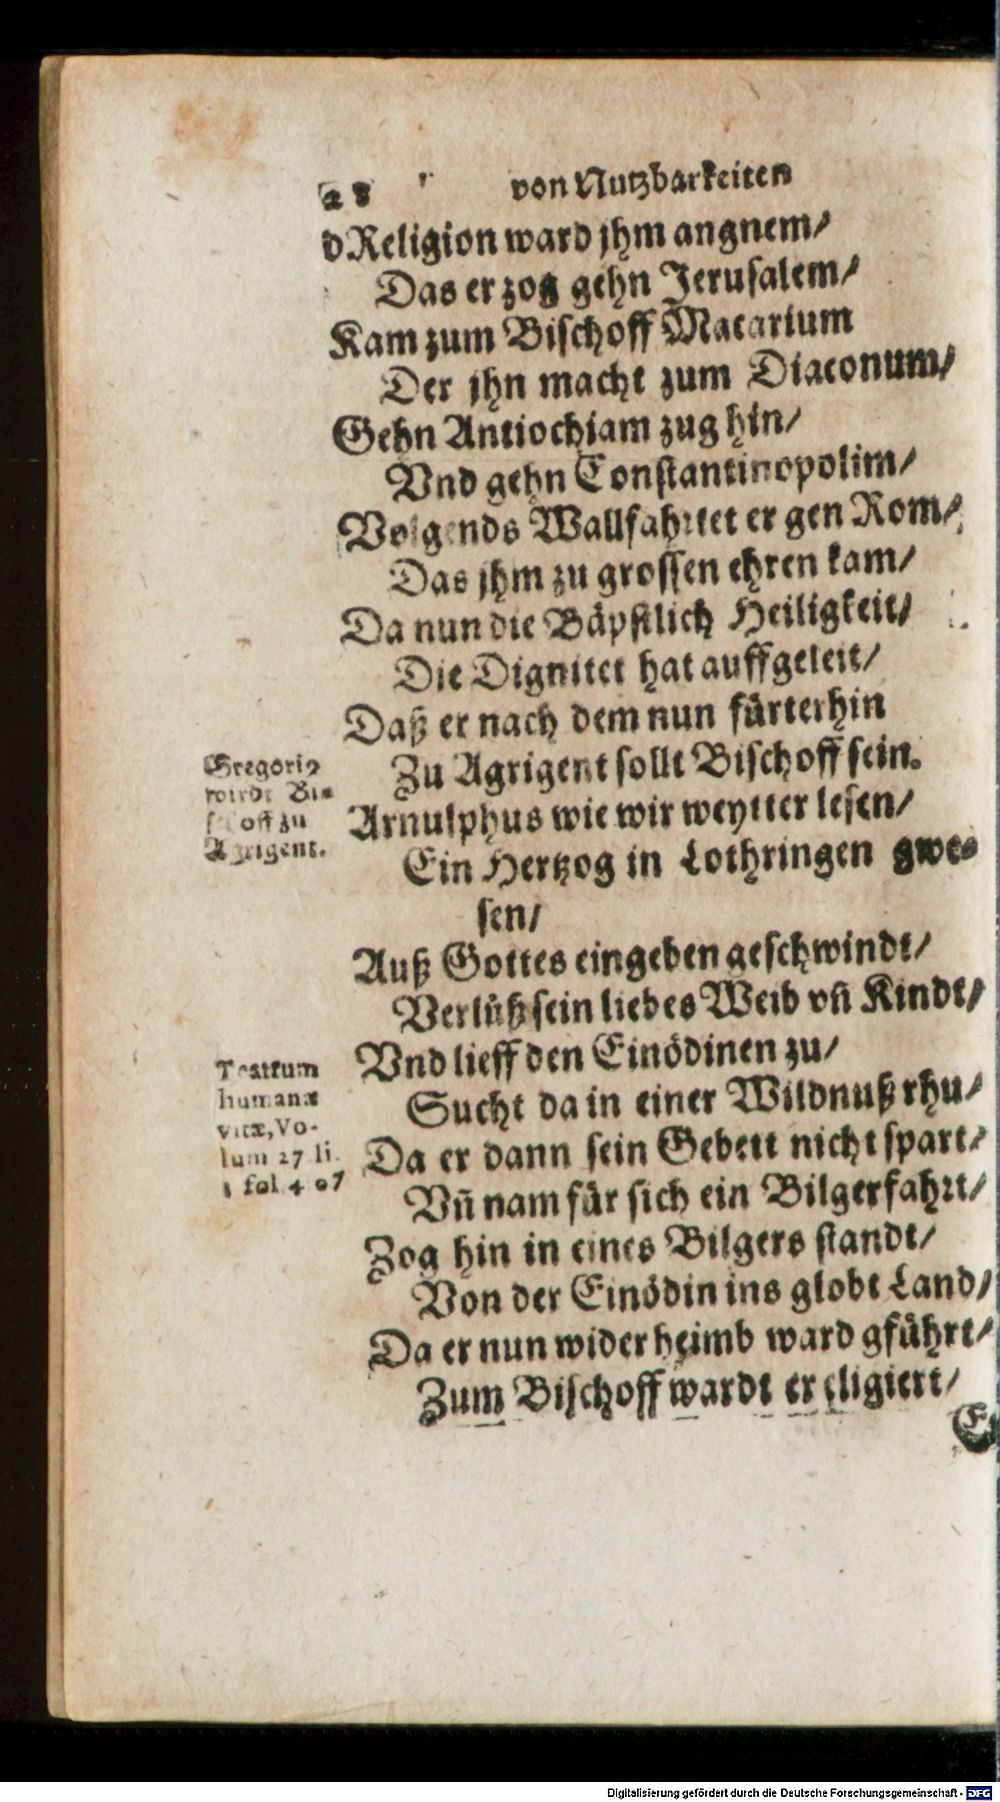 28 von Nutzbarkeiten
dReligion ward jhm angnem/
Das er zog gehn Jerusalem/
Kam zum Bischoff Macarium
Der jhn macht zum Diaconum/
Gehn Antiochiam zug hin/
Vnd gehn Constantinopolim/
Volgends Wallfahrtet er gen Rom/
Das jhm zu grossen ehren kam/
Da nun die Bäpstlich Heiligkeit/
Die Dignitet hat auffgeleit/
Daß er nach dem nun fürterhin
Gregoriꝰ
wirdt Bi-
schoff zu
Agrigent.
Zu Agrigent sollt Bischoff sein.
Arnulphus wie wir weytter lesen/
Ein Hertzog in Lothringen gwe-
sen/
Auß Gottes eingeben geschwindt/
Verlůß sein liebes Weib vñ Kindt/
Vnd lieff den Einödinen zu/
Teatrum
humanæ
vitæ, Vo-
lum 27 li.
fol. 407
Sucht da in einer Wildnuß rhu/
Da er dann sein Gebett nicht spart/
Vñ nam für sich ein Bilgerfahrt/
Zog hin in eines Bilgers standt/
Von der Einödin ins globt Land/
Da er nun wider heimb ward gführt/
Zum Bischoff wardt er eligiert/
Digitalisierung gefördert durch die Deutsche Forschungsgemeinschaft - DFG